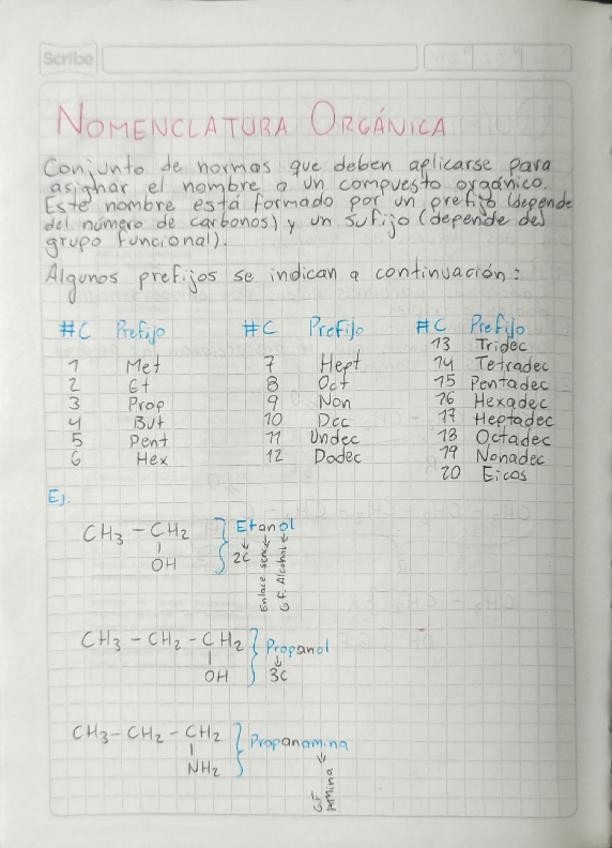 Scribe
NOMENCLATURA ORGÁNICA
Conjunto de normas que deben aplicarse para
asignar el nombre a un compuesto orgánico.
Este nombre está formado por un prefijo (depende
del número de carbonos) y un sufijo (depende del
grupo funcional).
Algunos prefijos se indican a continuación:
#C Prefijo #C Prefijo #C Prefijo
13 Tridec
1 Met 7 Hept 14 Tetradec
2 Et 8 Oct 15 Pentadec
3 Prop 9 Non 16 Hexadec
4 But 10 Dec 17 Heptadec
5 Pent 11 Undec 18 Octadec
6 Hex 12 Dodec 19 Nonadec
20 Eicos
Ej:
CH3 - CH2 } Etanol
OH 2C
Enlace senc.
G.F. Alcohol
CH3 - CH2 - CH2 } Propanol
OH 3C
CH3 - CH2 - CH2 } Propanamina
NH2
G.F
Amina